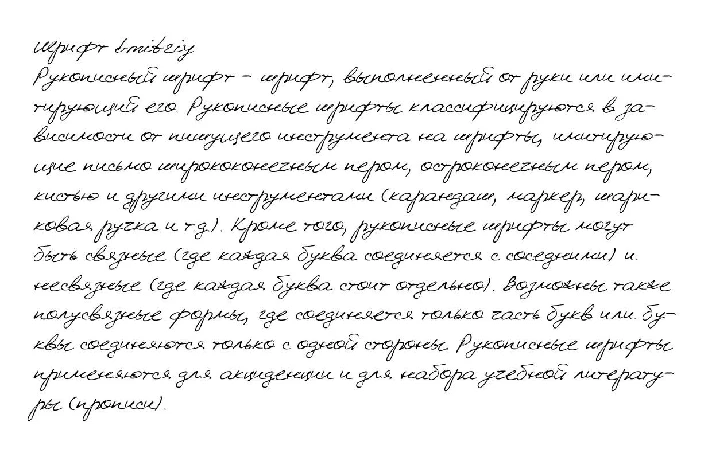 Шрифт Dmitriy
Рукописный шрифт - шрифт, выполненный от руки или ими-
тирующий его. Рукописные шрифты классифицируются в за-
висимости от пишущего инструмента на шрифты, имитирую-
щие письмо ширококонечным пером, остроконечным пером,
кистью и другими инструментами (карандаш, маркер, шари-
ковая ручка и т д.). Кроме того, рукописные шрифты могут
быть связные (где каждая буква соединяется с соседними) и
несвязные (где каждая буква стоит отдельно). Возможны также
полусвязные формы, где соединяется только часть букв или бу-
квы соединяются только с одной стороны. Рукописные шрифты
применяются для акциденции и для набора учебной литерату-
ры (прописи).